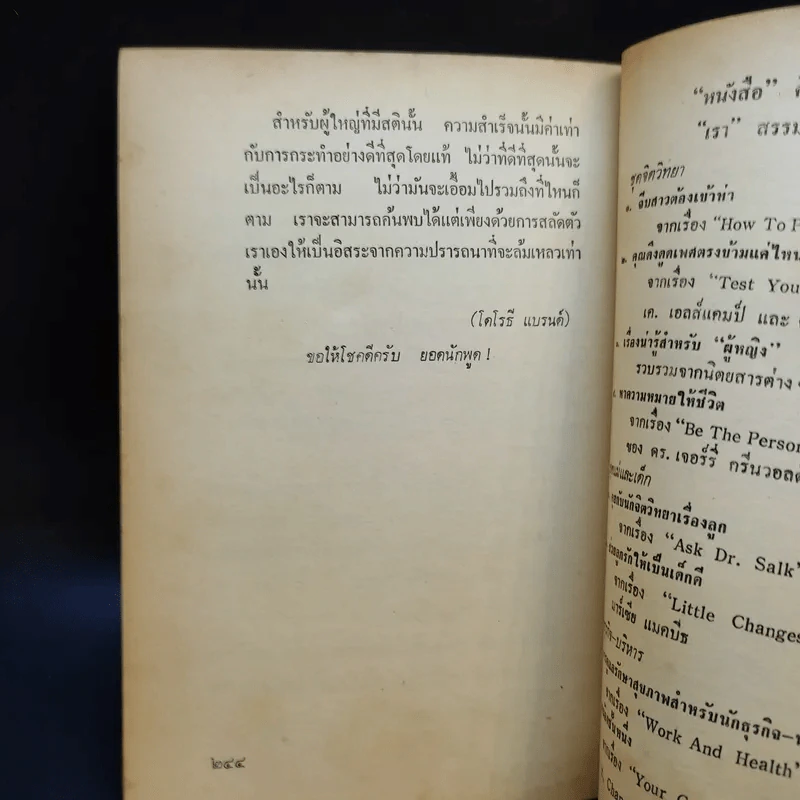 สำหรับผู้ใหญ่ที่มีสตินั้น ความสำเร็จนั้นมีค่าเท่า
กับการกระทำอย่างดีที่สุดโดยแท้ ไม่ว่าที่ดีที่สุดนั้นจะ
เป็นอะไรก็ตาม ไม่ว่ามันจะเอื้อมไปรวมถึงที่ไหนก็
ตาม เราจะสามารถค้นพบได้แต่เพียงด้วยการสลัดตัว
เราเองให้เป็นอิสระจากความปรารถนาที่จะล้มเหลวเท่า
นั้น
(โดโรธี แบรนด์)
ขอให้โชคดีครับ ยอดนักพูด !
๒๔๔
“หนังสือ”
“เรา” สรรม
ชุดจิตวิทยา
จีบสาวต้องเข้าท่า
จากเรื่อง “How To P
คุณดึงดูดเพศตรงข้ามแค่ไหน
จากเรื่อง “Test You
เค. เอลส์แคมป์ และ
เรื่องน่ารู้สำหรับ “ผู้หญิง”
รวบรวมจากนิตยสารต่าง
หาความหมายให้ชีวิต
จากเรื่อง “Be The Person
ของ ดร. เจอร์รี่ กรีนวอลด
แม่และเด็ก
คุยกับนักจิตวิทยาเรื่องลูก
จากเรื่อง “Ask Dr. Salk”
ลูกรักให้เป็นเด็กดี
จากเรื่อง “Little Changes
มาร์เซีย แมคบีธ
กิจ-บริหาร
และรักษาสุขภาพสำหรับนักธุรกิจ-
จากเรื่อง “Work And Health”
ชั้นหนึ่ง
จากเรื่อง “Your